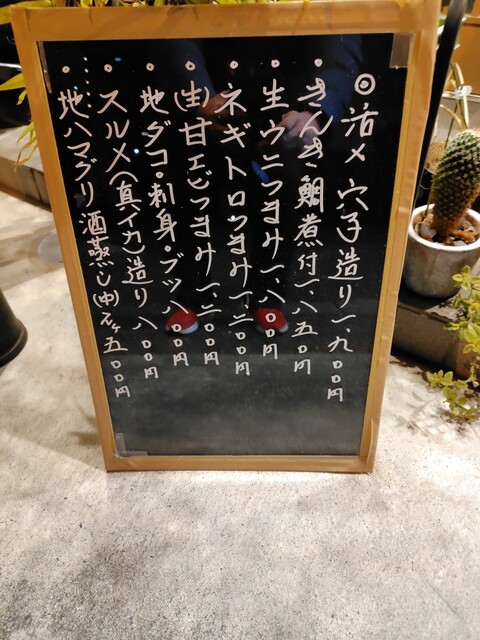 ◎活〆穴子造り一、九〇〇円
・きんき鯛煮付一、八五〇円
。生ウニつまみ一、八〇〇円
。ネギトロつまみ一、二〇〇円
。(生)甘エビつまみ一、二〇〇円
。地ダコ・刺身・ブツ八〇〇円
。スルメ(真イカ)造り八〇〇円
。地ハマグリ酒蒸し(中)2ヶ五〇〇円